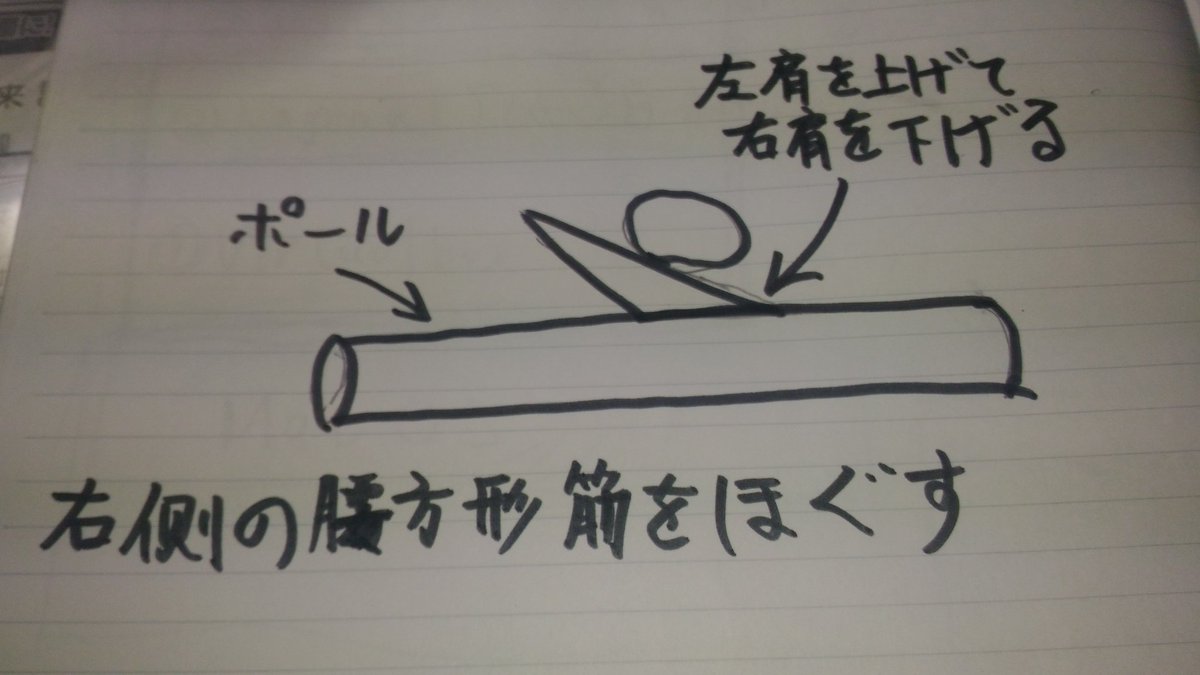 左肩を上げて
右肩を下げる
ポール
右側の腰方形筋をほぐす
来